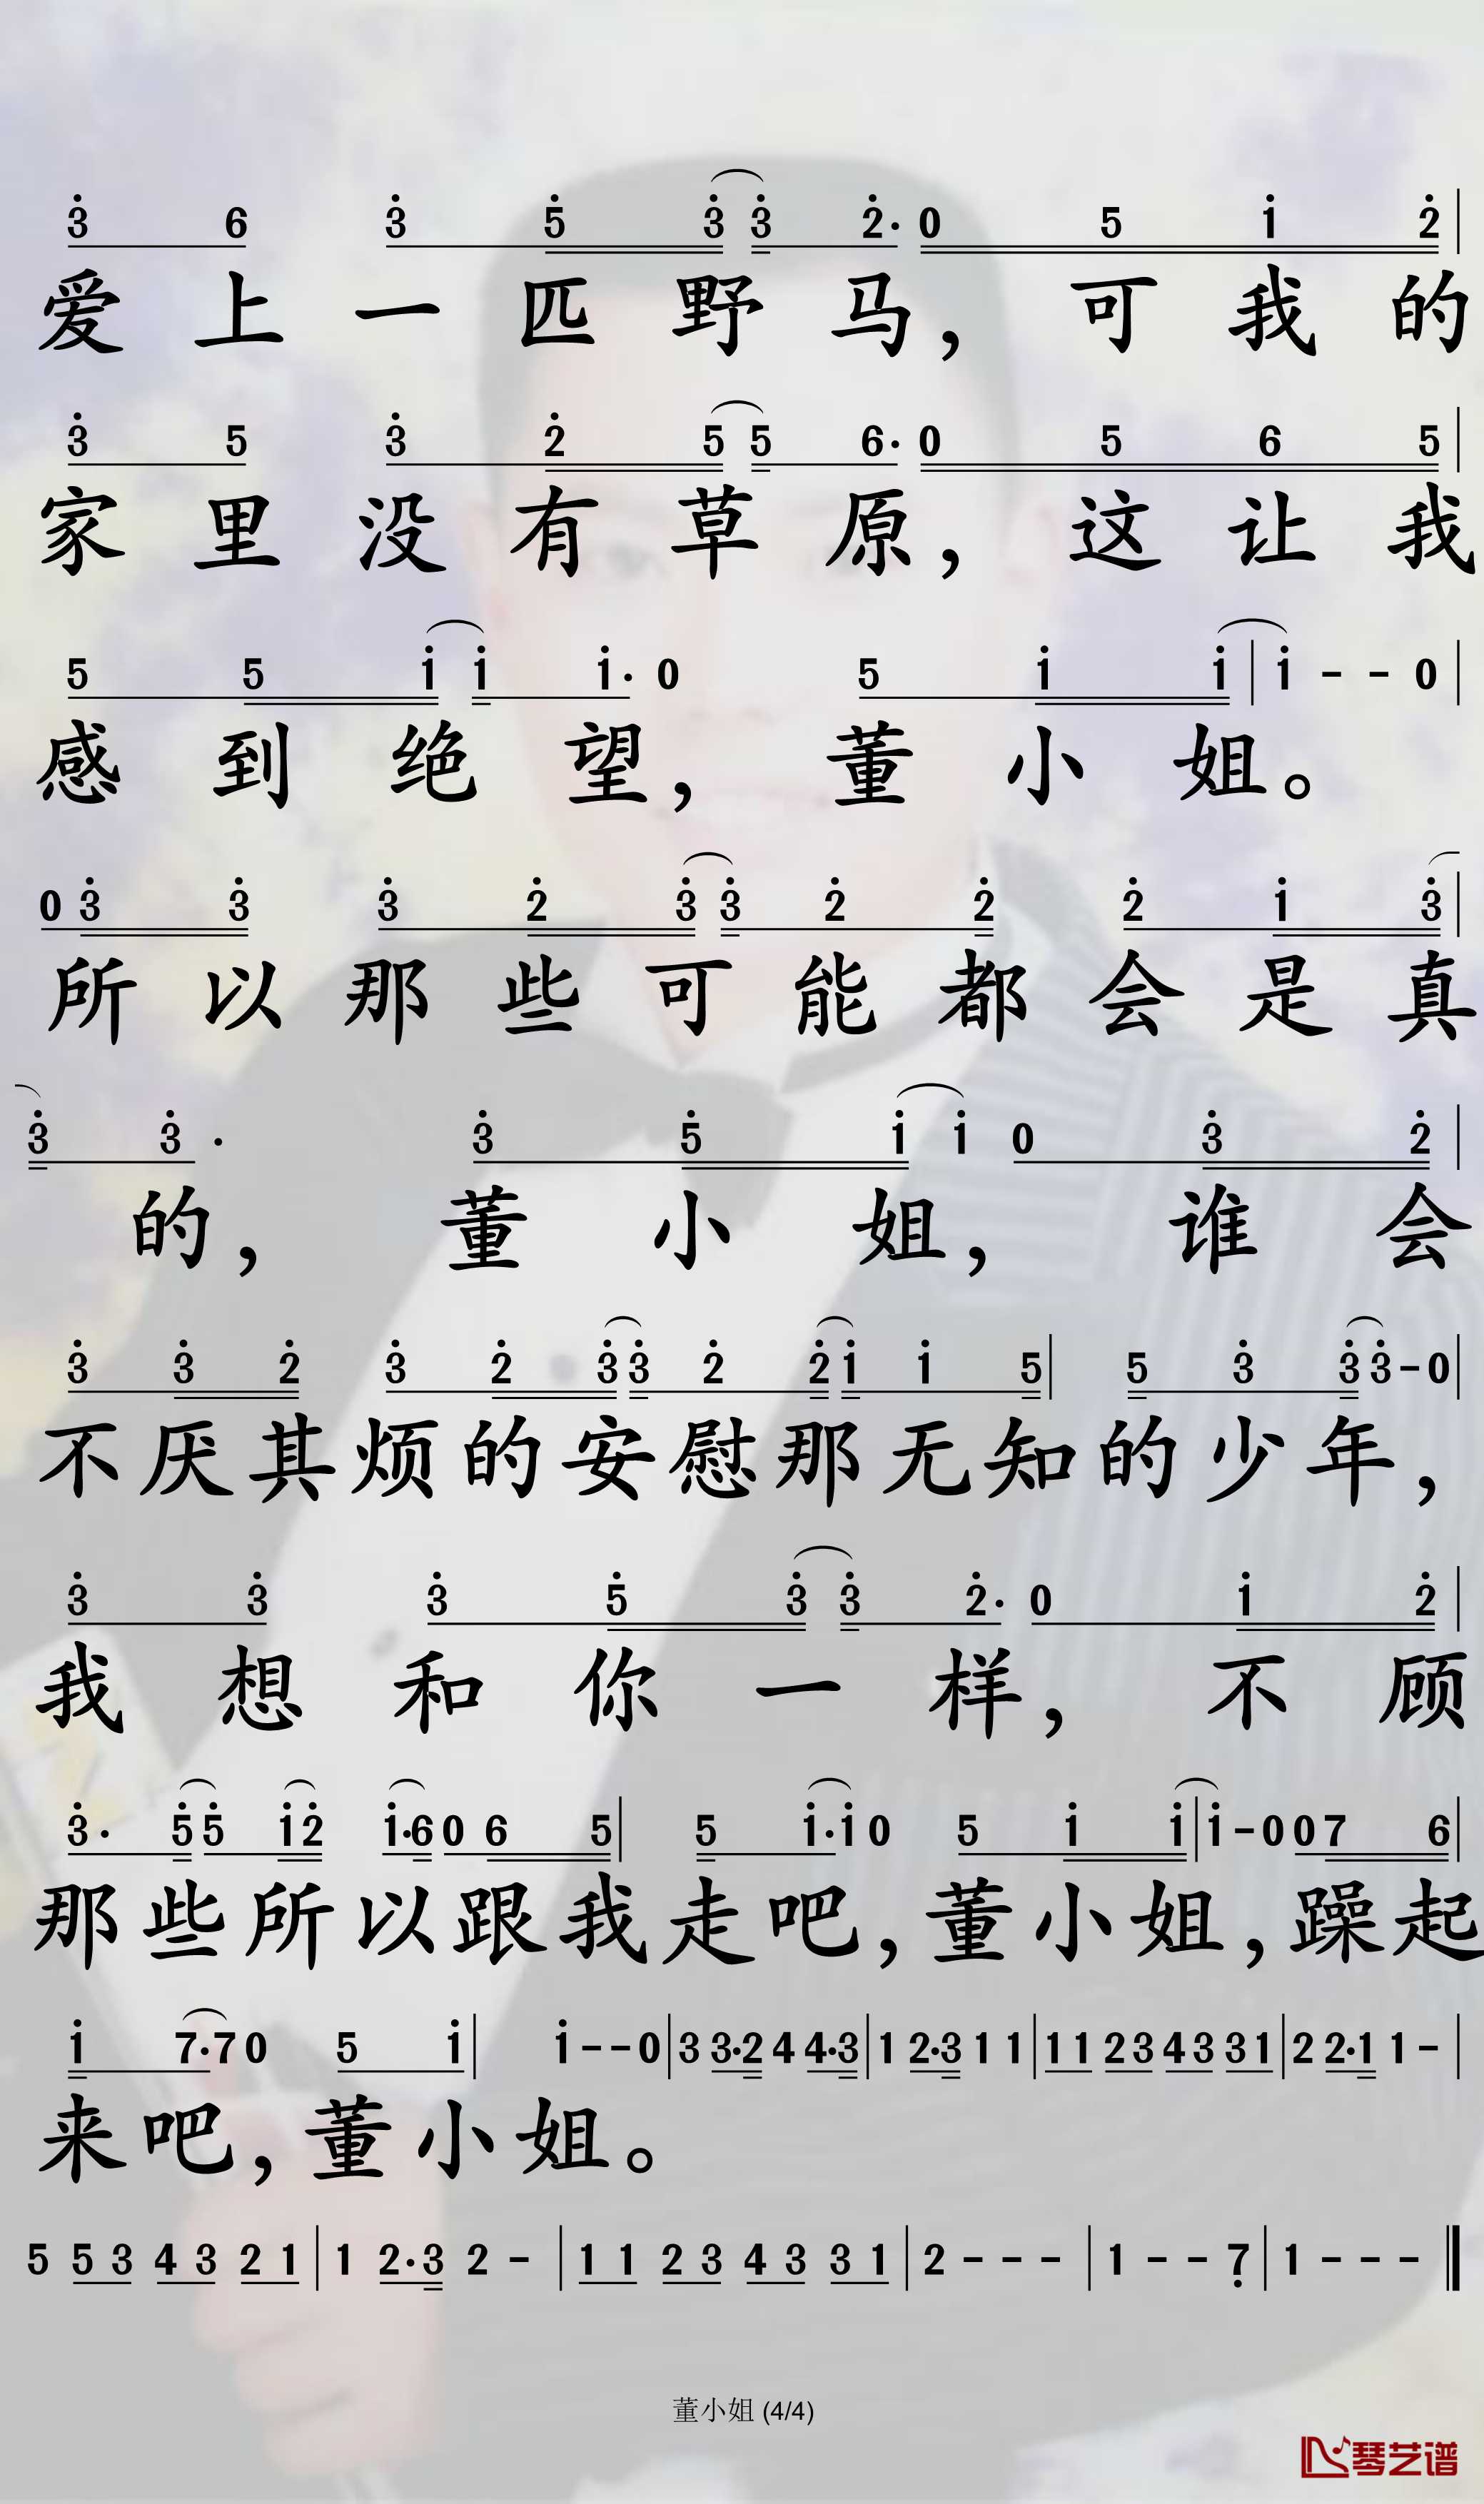 3̇ 6 3̇ 5̇ 3̇ 3̇ 2̇· 0 5 1̇ 2̇ |
爱上一匹野马，可我的
3̇ 5 3̇ 2̇ 5 5 6· 0 5 6 5 |
家里没有草原，这让我
5 5 1̇ 1̇ 1̇· 0 5 1̇ 1̇ | 1̇ - - 0 |
感到绝望，董小姐。
0 3̇ 3̇ 3̇ 2̇ 3̇ 3̇ 2̇ 2̇ 2̇ 1̇ 3̇ |
所以那些可能都会是真
3̇ 3̇· 3̇ 5̇ 1̇ 1̇ 0 3̇ 2̇ |
的，董小姐，谁会
3̇ 3̇ 2̇ 3̇ 2̇ 3̇ 3̇ 2̇ 2̇ 1̇ 1̇ 5 | 5 3̇ 3̇ 3̇ - 0 |
不厌其烦的安慰那无知的少年，
3̇ 3̇ 3̇ 5̇ 3̇ 3̇ 2̇· 0 1̇ 2̇ |
我想和你一样，不顾
3̇· 5̇ 5̇ 1̇ 2̇ 1̇· 6 0 6 5 | 5 1̇· 1̇ 0 5 1̇ 1̇ | 1̇ - 0 0 7 6 |
那些所以跟我走吧，董小姐，躁起
1̇ 7· 7 0 5 1̇ | 1̇ - - 0 | 3 3· 2 4 4· 3 | 1 2· 3 1 1 | 1 1 2 3 4 3 3 1 | 2 2· 1 1 - |
来吧，董小姐。
5 5 3 4 3 2 1 | 1 2· 3 2 - | 1 1 2 3 4 3 3 1 | 2 - - - | 1 - - 7̣ | 1 - - - ‖
董小姐 (4/4)
琴艺谱